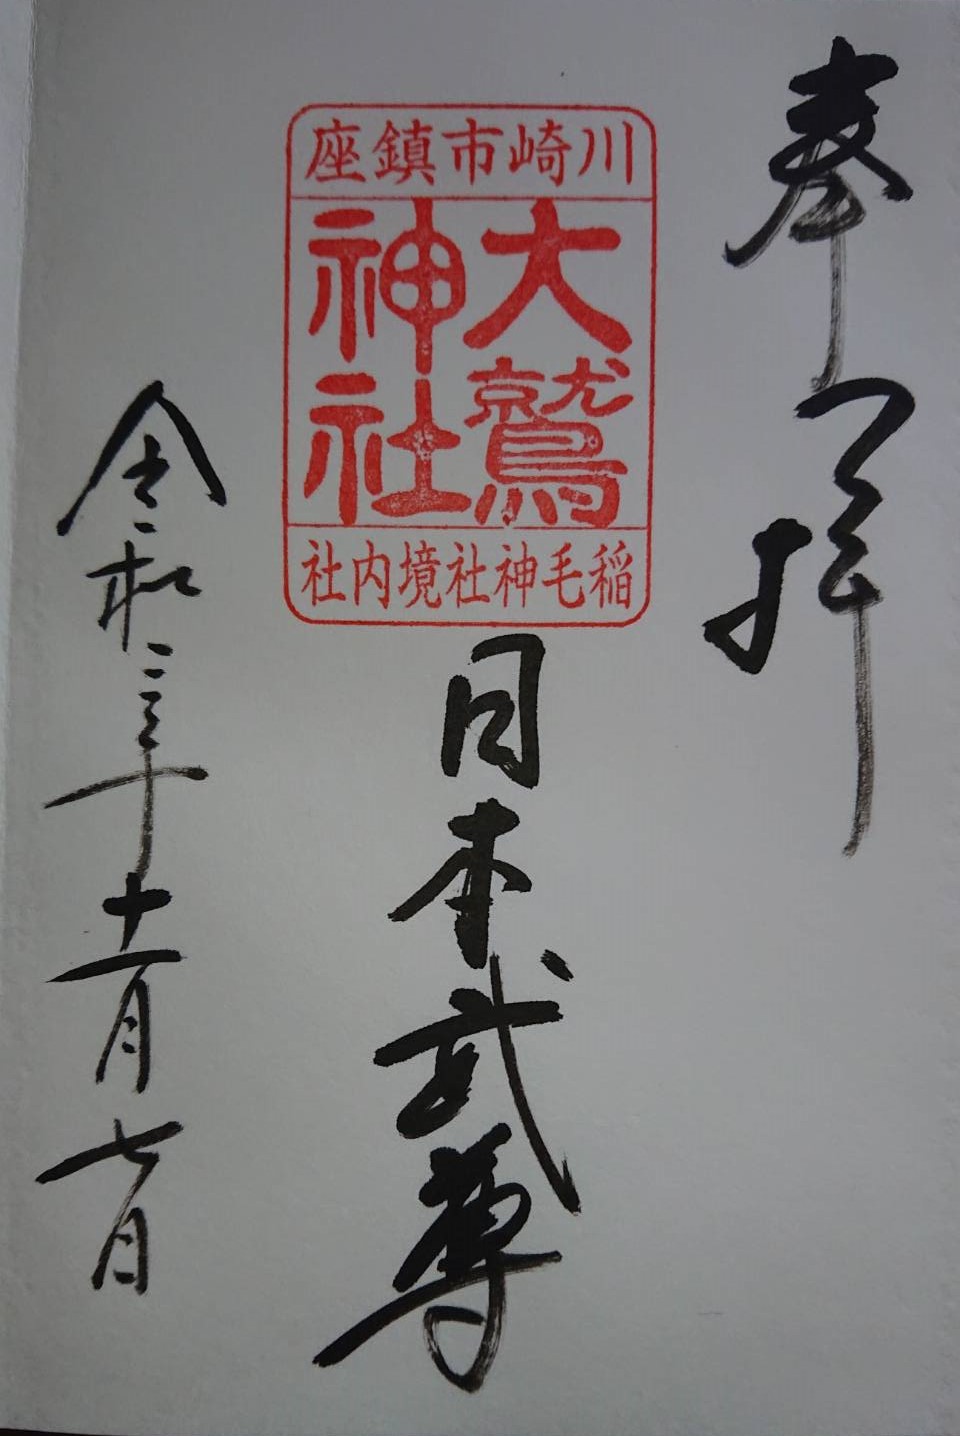 奉拝
川崎市鎮座
大鷲
神社
稲毛神社境内社
日本武尊
令和三年十一月七日